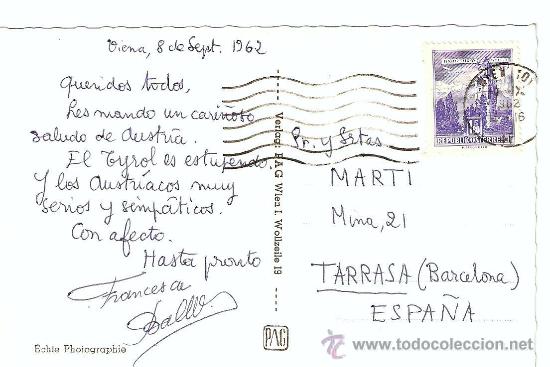 Viena, 8 de Sept. 1962
Queridos todos,
Les mando un cariñoso
saludo de Austria.
El Tyrol es estupendo.
Y los Austríacos muy
serios y simpáticos.
Con afecto.
Hasta pronto
Francesca
Echte Photographie
Verlag: PAG Wien I, Wollzeile 19
PAG
REPUBLIK ÖSTERREICH
Sr. y Srtas.
MARTI
Mina, 21
TARRASA (Barcelona)
ESPAÑA
www.todocoleccion.net